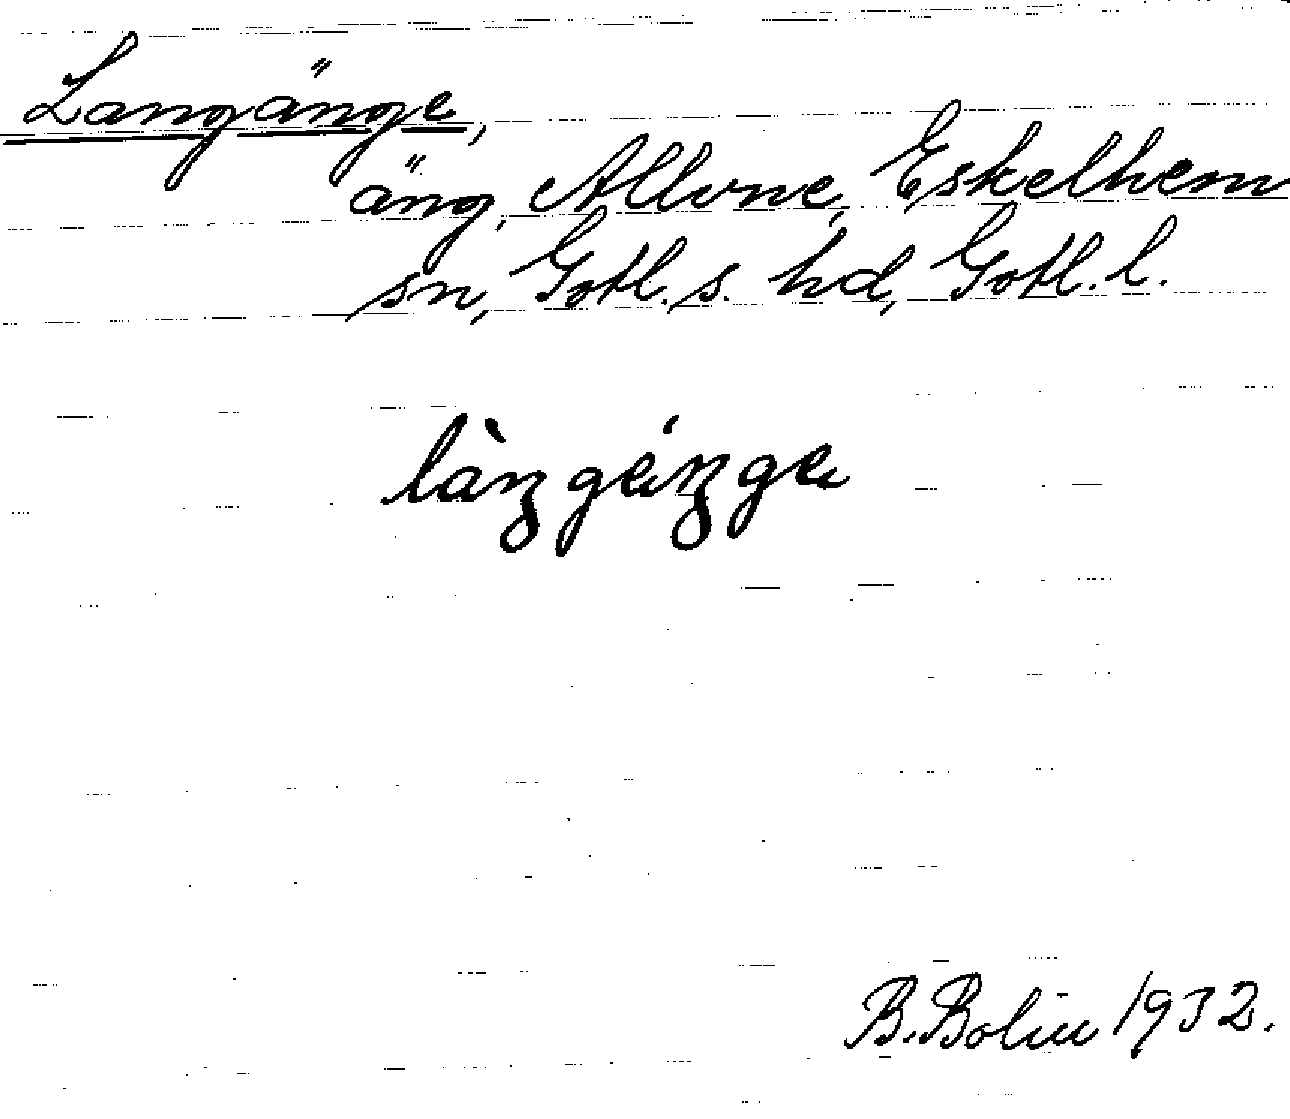 Langänge,
äng, Allvne, Eskelhem
sn, Gotl. s. hd, Gotl. l.
làŋgéŋge
B. Bolin 1932.